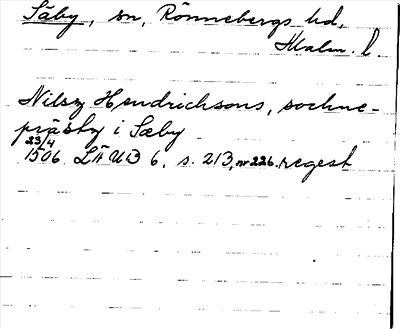 Säby, sn, Rönnebergs hd,
Malm. l.
Nilsz Hendrichsons, sochne-
prästz i Sæby
23/4
1506. LÄUB 6, s. 213, nr 226. regest